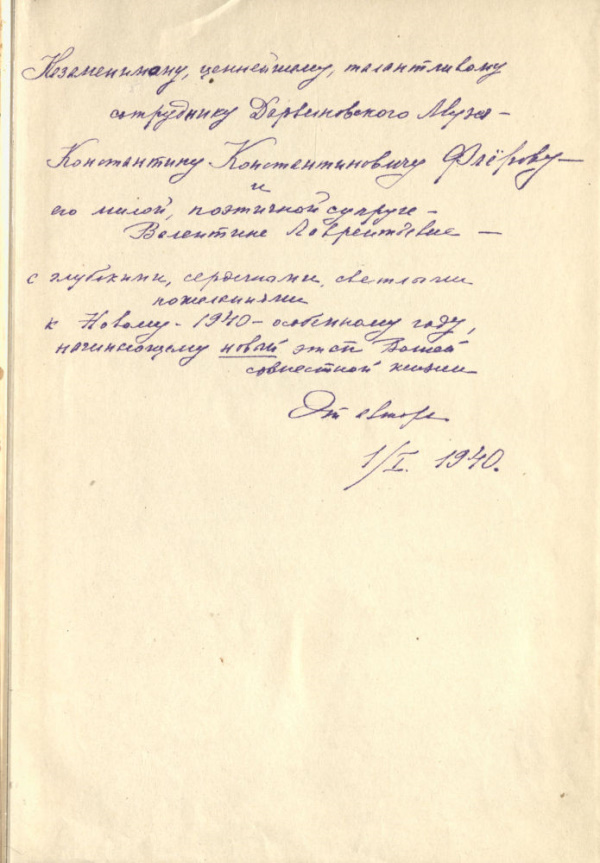 Незаменимому, ценнейшему, талантливому
сотруднику Дарвиновского Музея –
Константину Константиновичу Флёрову –
и
его милой, поэтичной супруге –
Валентине Лаврентьевне –
с глубокими, сердечными, светлыми
пожеланиями
к Новому – 1940 – особенному году,
начинающему новый этап Вашей
совместной жизни
От автора
1/I. 1940.